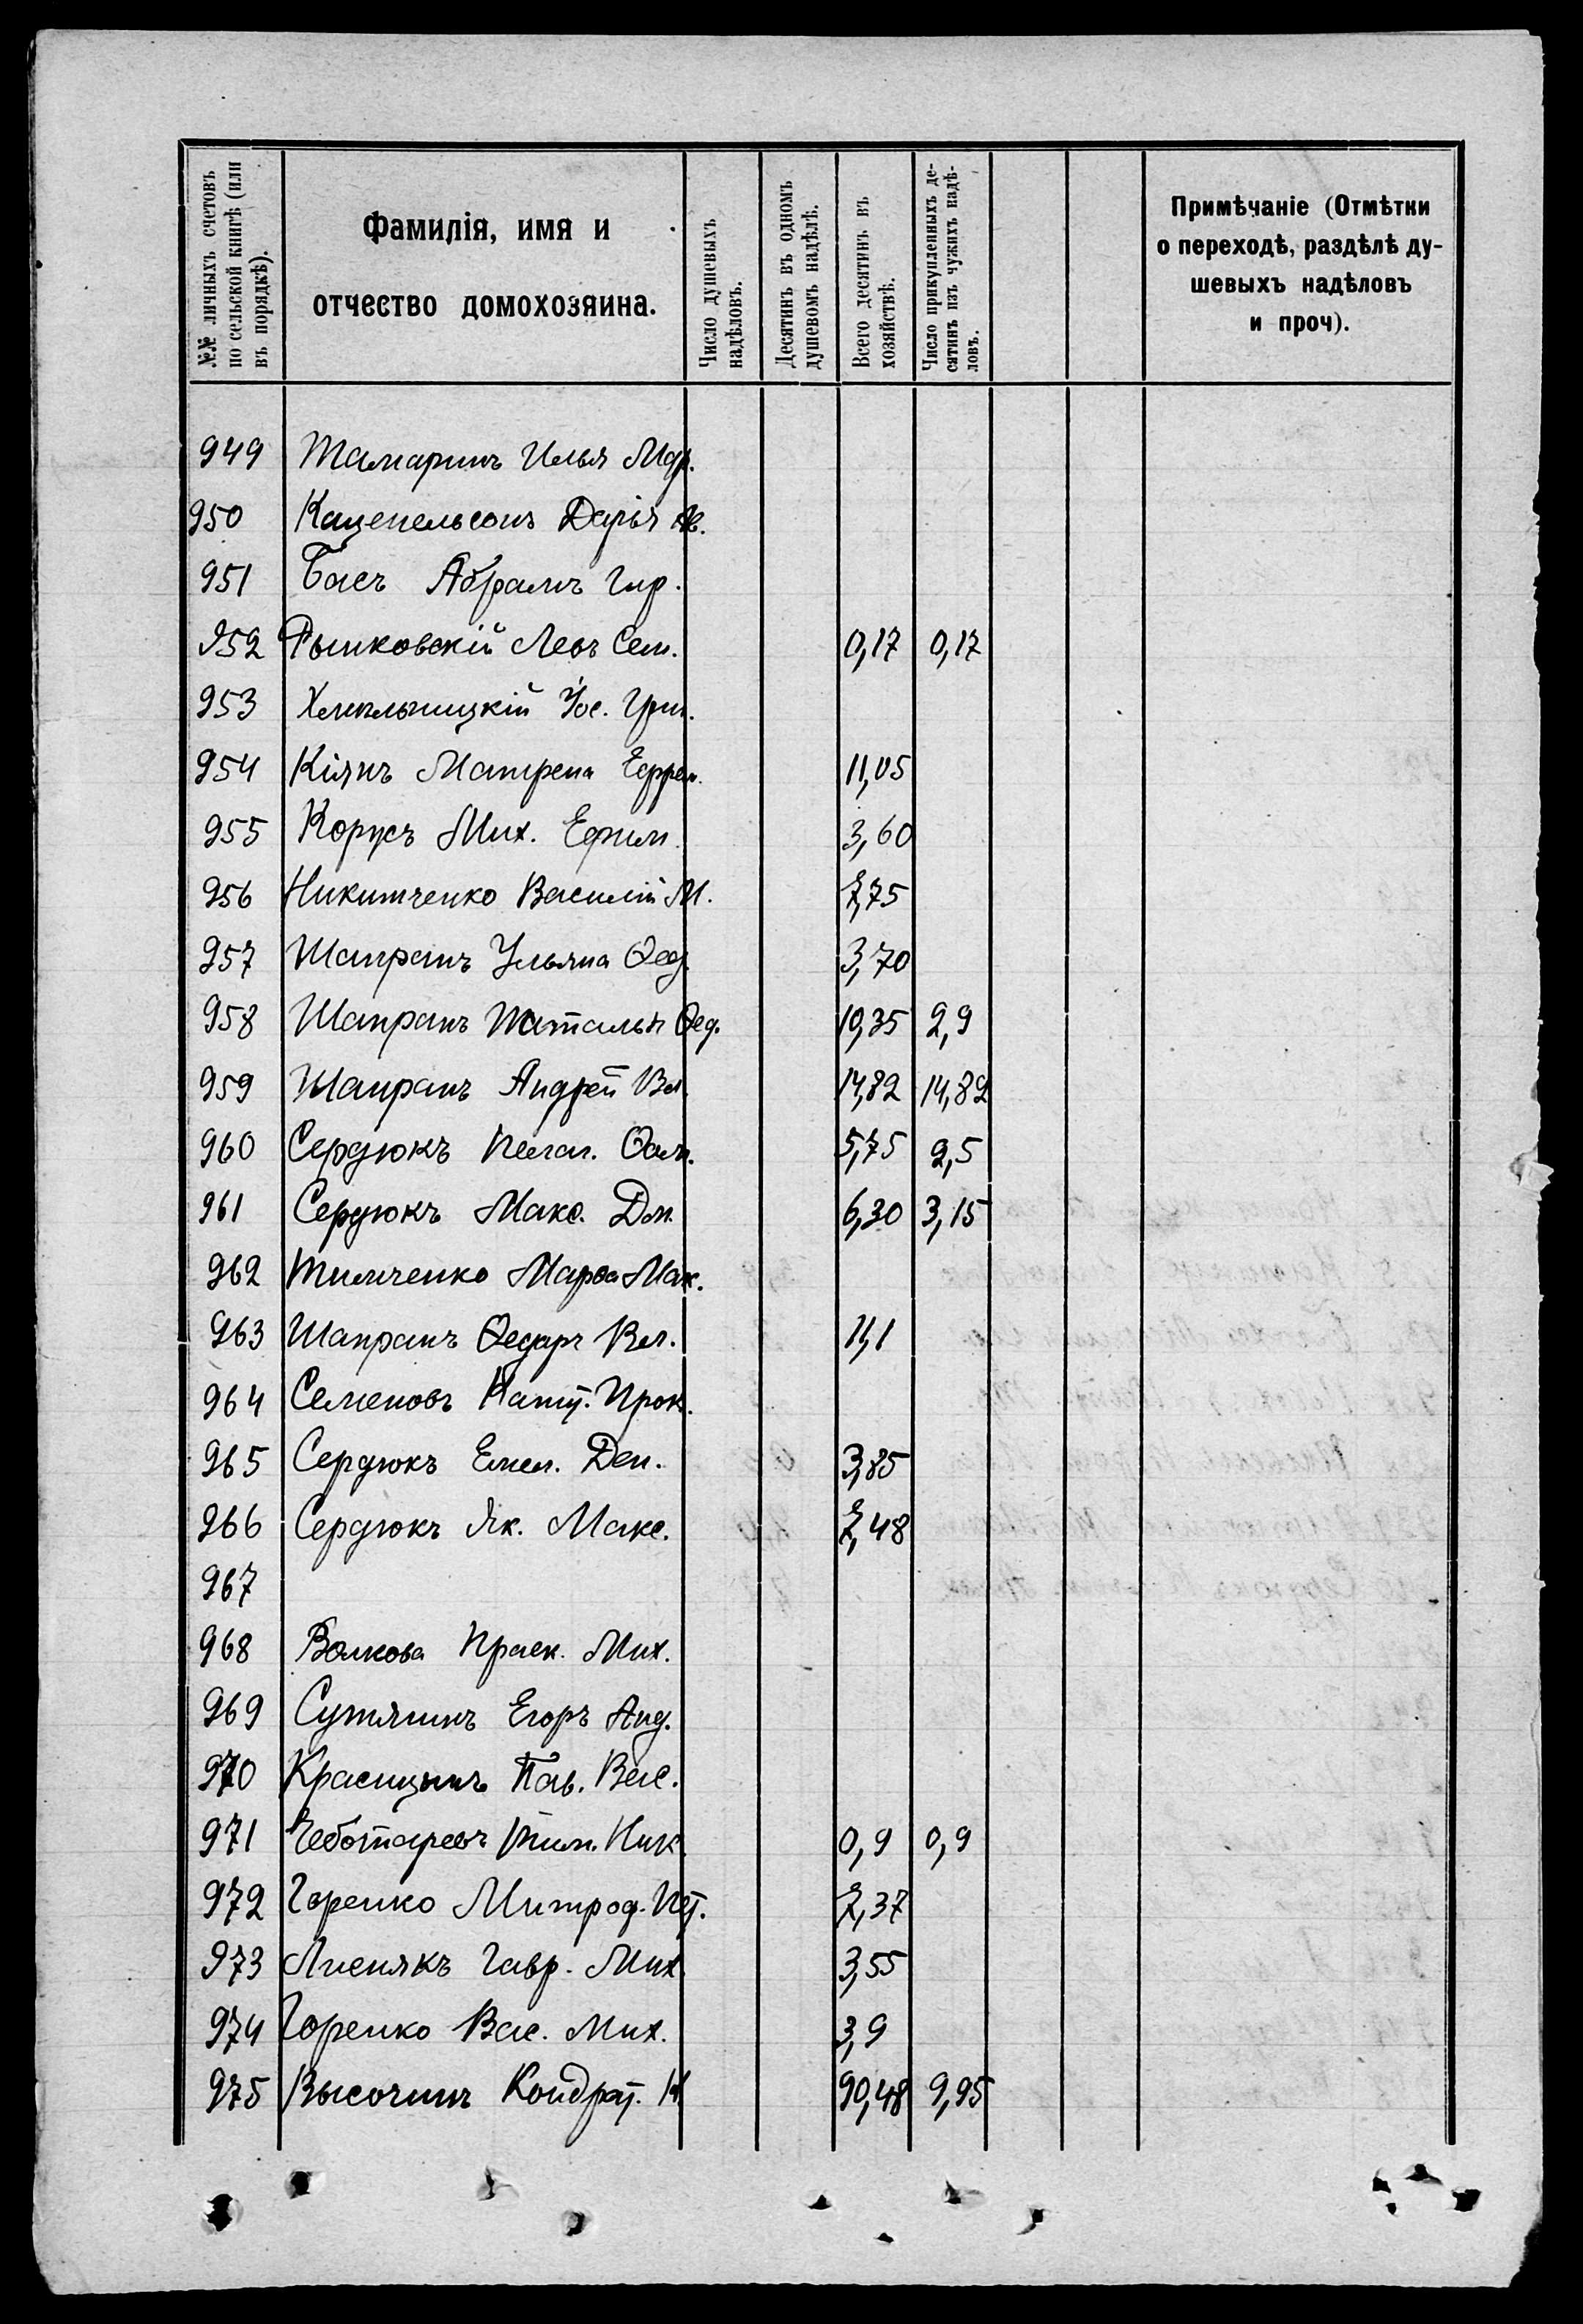 №№ личныхъ счетовъ по сельской книгѣ (или въ порядкѣ).
Фамилія, имя и отчество домохозяина.
Число душевыхъ надѣловъ.
Десятинъ въ одномъ душевомъ надѣлѣ.
Всего десятинъ въ хозяйствѣ.
Число прикупленныхъ десятинъ изъ чужихъ надѣловъ.
Примѣчаніе (Отмѣтки о переходѣ, раздѣлѣ душевыхъ надѣловъ и проч).
949 Тамаринъ Илья
950 Каценельсонъ Дарья
951 Басъ Абрамъ Гир.
952 Рынковскій Левъ Сем. 0,17 0,17
953 Хмѣльницкій Іос. Гри.
954 Кіянъ Матрена Ефрем. 11,05
955 Корусъ Мих. Ефим. 3,60
956 Никитченко Василій М. 7,75
957 Шапранъ Ульяна Ѳед. 3,70
958 Шапранъ Наталья Ѳед. 10,35 2,9
959 Шапранъ Андрей Вл. 14,82 14,82
960 Сердюкъ Пелаг. 5,75 2,5
961 Сердюкъ Макс. Дм. 6,30 3,15
962 Тимченко Марѳа Мак.
963 Шапранъ Ѳедоръ Вл. 11,1
964 Семеновъ Прок.
965 Сердюкъ Емел. Ден. 3,85
966 Сердюкъ Як. Макс. 7,48
967
968 Волкова Праск. Мих.
969 Сутягинъ Егоръ Анд.
970 Красицынъ Пав. Вас.
971 Чеботаревъ Тим. Ник. 0,9 0,9
972 Горенко Митрод. Пет. 7,37
973 Лиснякъ Гавр. Мих. 3,55
974 Горенко Вас. Мих. 3,9
975 Высочинъ Кондрат. И 90,48 9,95